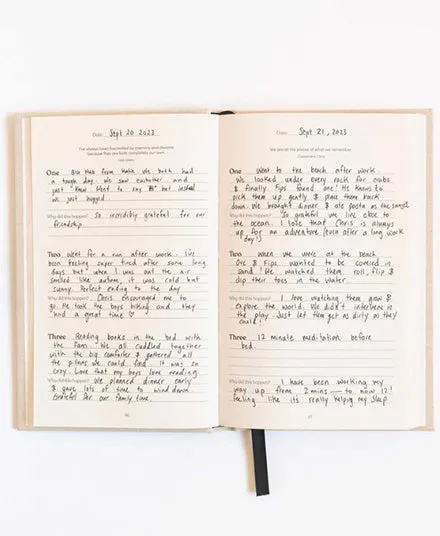 Date: Sept 20 2023
One Big Hug from Katie. We both had
a tough day. We saw eachother and
just knew. Want to say "Hi" but instead
we just hugged
Why did this happen? So incredibly grateful for our
friendship.
Two Went for a run after work. I've
been feeling super tired after some long
days but when I was out the air
smelled like autumn, it was cold but
sunny. Perfect ending to the day
Why did this happen? Chris encouraged me to
go. He took the boys biking and they
had a great time ♡
Three Reading books in the bed with
the fam. We all cuddled together
with the big comforter & gathered all
the pillows we could find. It was so
cozy. Love that my boys love reading.
Why did this happen? We planned dinner early
& gave lots of time to wind down
Grateful for our family time.
Date: Sept 21, 2023
We are all the pieces of what we remember.
One Went to the beach after work.
We looked under every rock for crabs
& finally Fips found one! He knows to
pick them up gently & place them back
down. We brought dinner & ate pasta on the sand!
Why did this happen? So grateful we live close to
the ocean. I love that Chris is always
up for an adventure (even after a long work
day!)
Two When we were at the beach
& Fips wanted to be covered in
sand! We watched them roll, flip &
dip their toes in the water
Why did this happen? I love watching them grow &
explore the world. We didn't intervene in
the play. Just let them get as dirty as they
could!
Three 12 minute meditation before
bed.
Why did this happen? I have been working my
way up from 2 mins → to now 12!
Feeling like its really helping my sleep